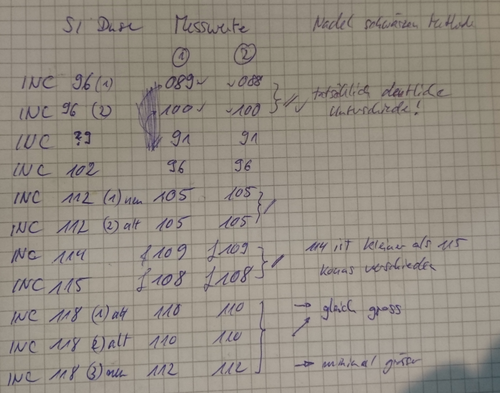 SI Düse Messwerte Nadel schwärzen Methode
① ②
INC 96 (1) 089 088
INC 96 (2) 100 100 tatsächlich deutliche Unterschiede!
INC 79 91 91
INC 102 96 96
INC 112 (1) neu 105 105
INC 112 (2) alt 105 105
INC 114 109 109 114 ist kleiner als 115
INC 115 108 108 kaum verschieden
INC 118 (1) alt 110 110 → gleich gross
INC 118 (2) alt 110 110
INC 118 (3) neu 112 112 → minimal grösser